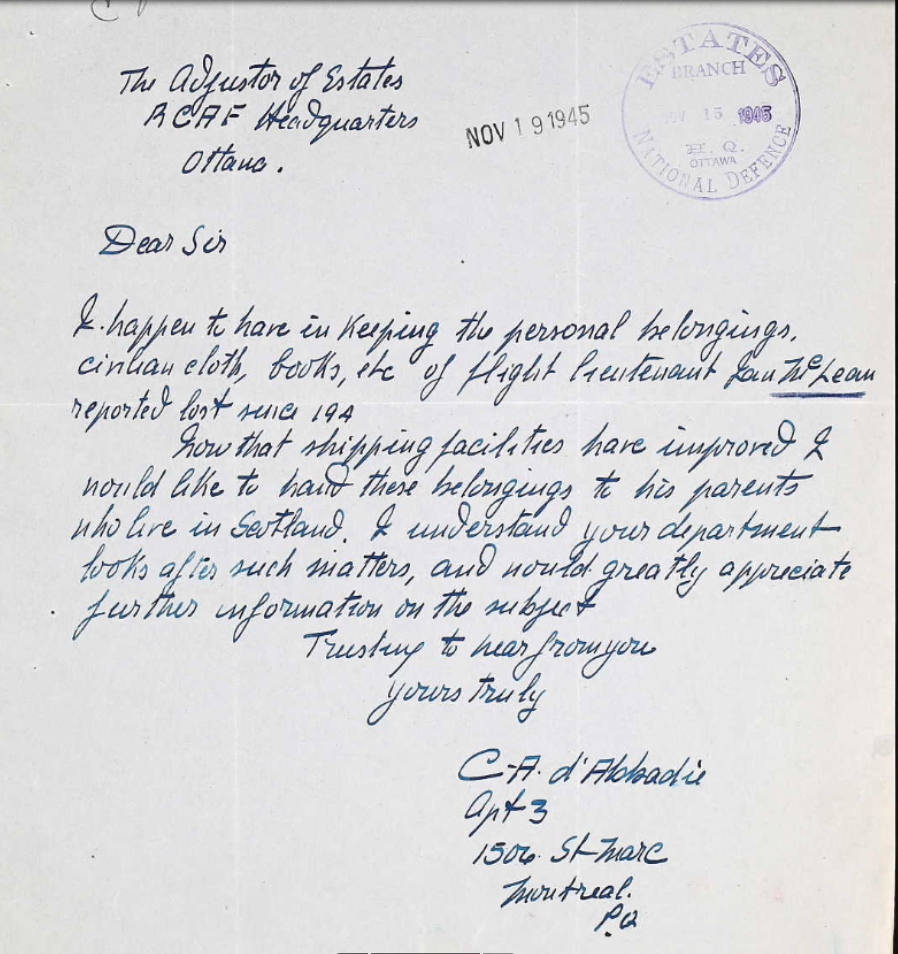 The Adjustor of Estates
RCAF Headquarters
Ottawa.
NOV 19 1945
ESTATES
BRANCH
15 1945
H. Q.
OTTAWA
NATIONAL DEFENCE
Dear Sir
I happen to have in keeping the personal belongings,
civilian cloth, books, etc of flight lieutenant Ian McLean
reported lost since 194
Now that shipping facilities have improved I
would like to hand these belongings to his parents
who live in Scotland. I understand your department
looks after such matters, and would greatly appreciate
further information on the subject
Trusting to hear from you
yours truly
C-A. d'Abbadie
Apt 3
1506 St-Marc
Montreal.
P.Q